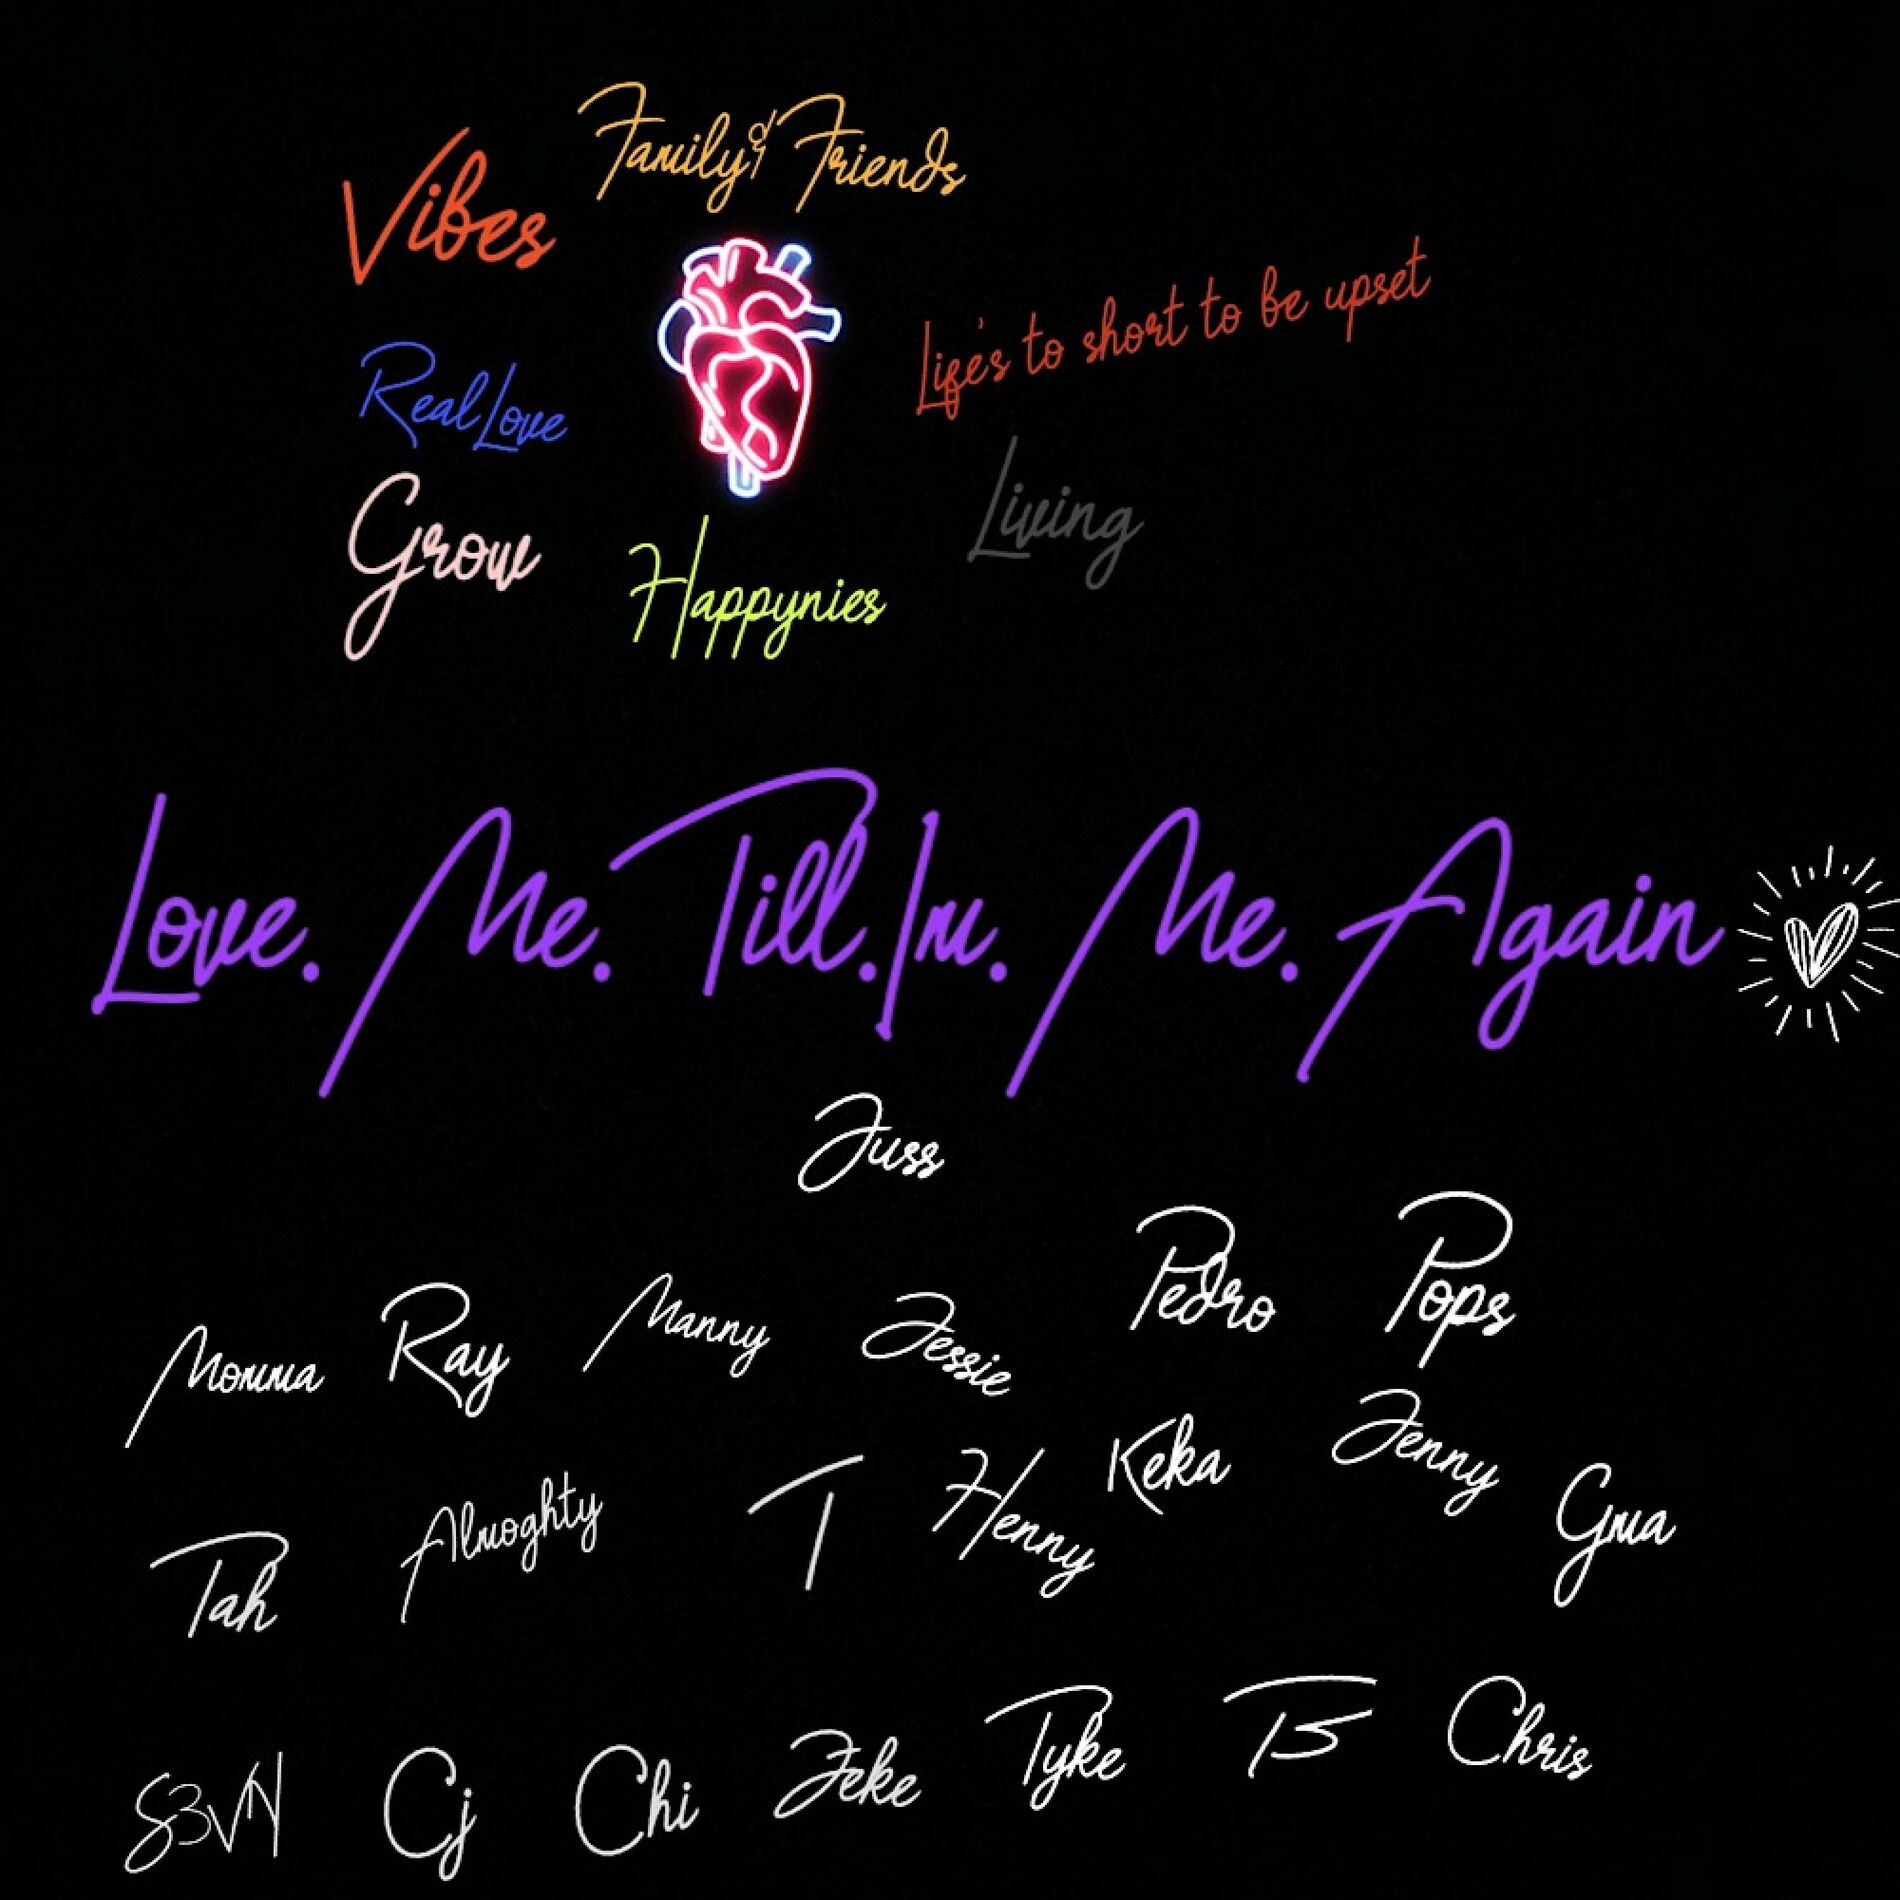 Family & Friends
Vibes
Life's to short to be upset
Real Love
Living
Grow
Happynies
Love. Me. Till. Im. Me. Again
Juss
Pedro
Pops
Momma
Ray
Manny
Jessie
Keka
Jenny
Tah
Almoghty
T
Henny
Gma
S3VN
Cj
Chi
Jeke
Tyke
B
Chris